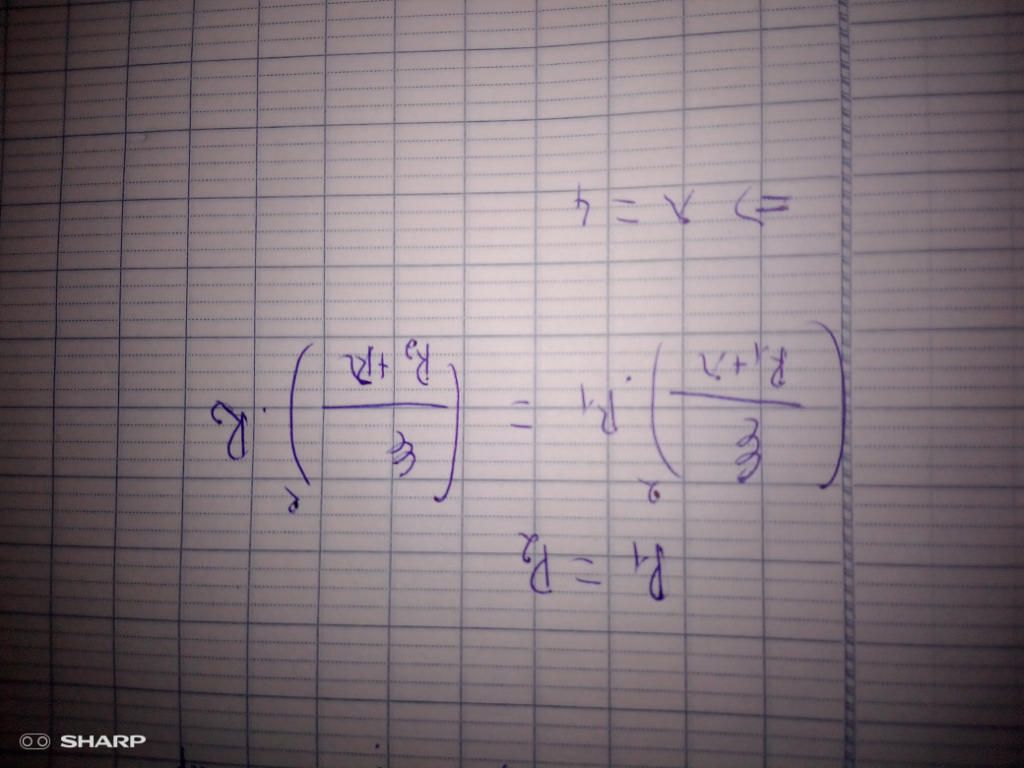 P1 = P2
(ξ / (R1 + r))² · R1 = (ξ / (R2 + r))² · R2
=> r = 4
SHARP